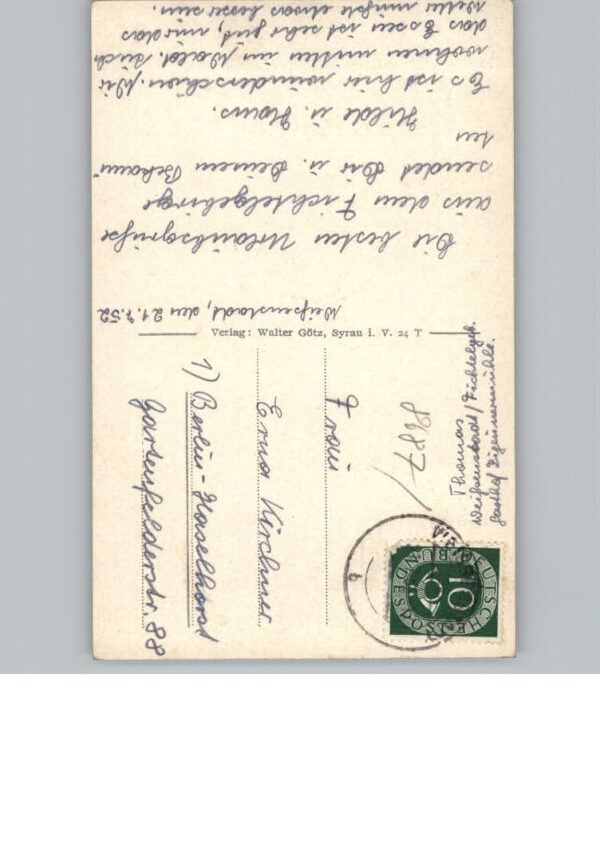 Weißenstadt, den 21.7.52
Die besten Urlaubsgrüße
aus dem Fichtelgebirge
sendet Dir u. Deinem Bekann-
ten
Hilde u. Hans.
Es ist hier wunderschön. Wir
wohnen mitten im Wald. Auch
das Essen ist sehr gut, nur das
Wetter müßte etwas besser sein.
Verlag: Walter Götz, Syrau i. V. 24 T
Thomas
Weißenstadt/Fichtelgeb.
Gasthof Zigeunermühle.
DEUTSCHE BUNDESPOST
10
Frau
Erna Kirchner
1) Berlin-Haselhorst
Gartenfelderstr. 88